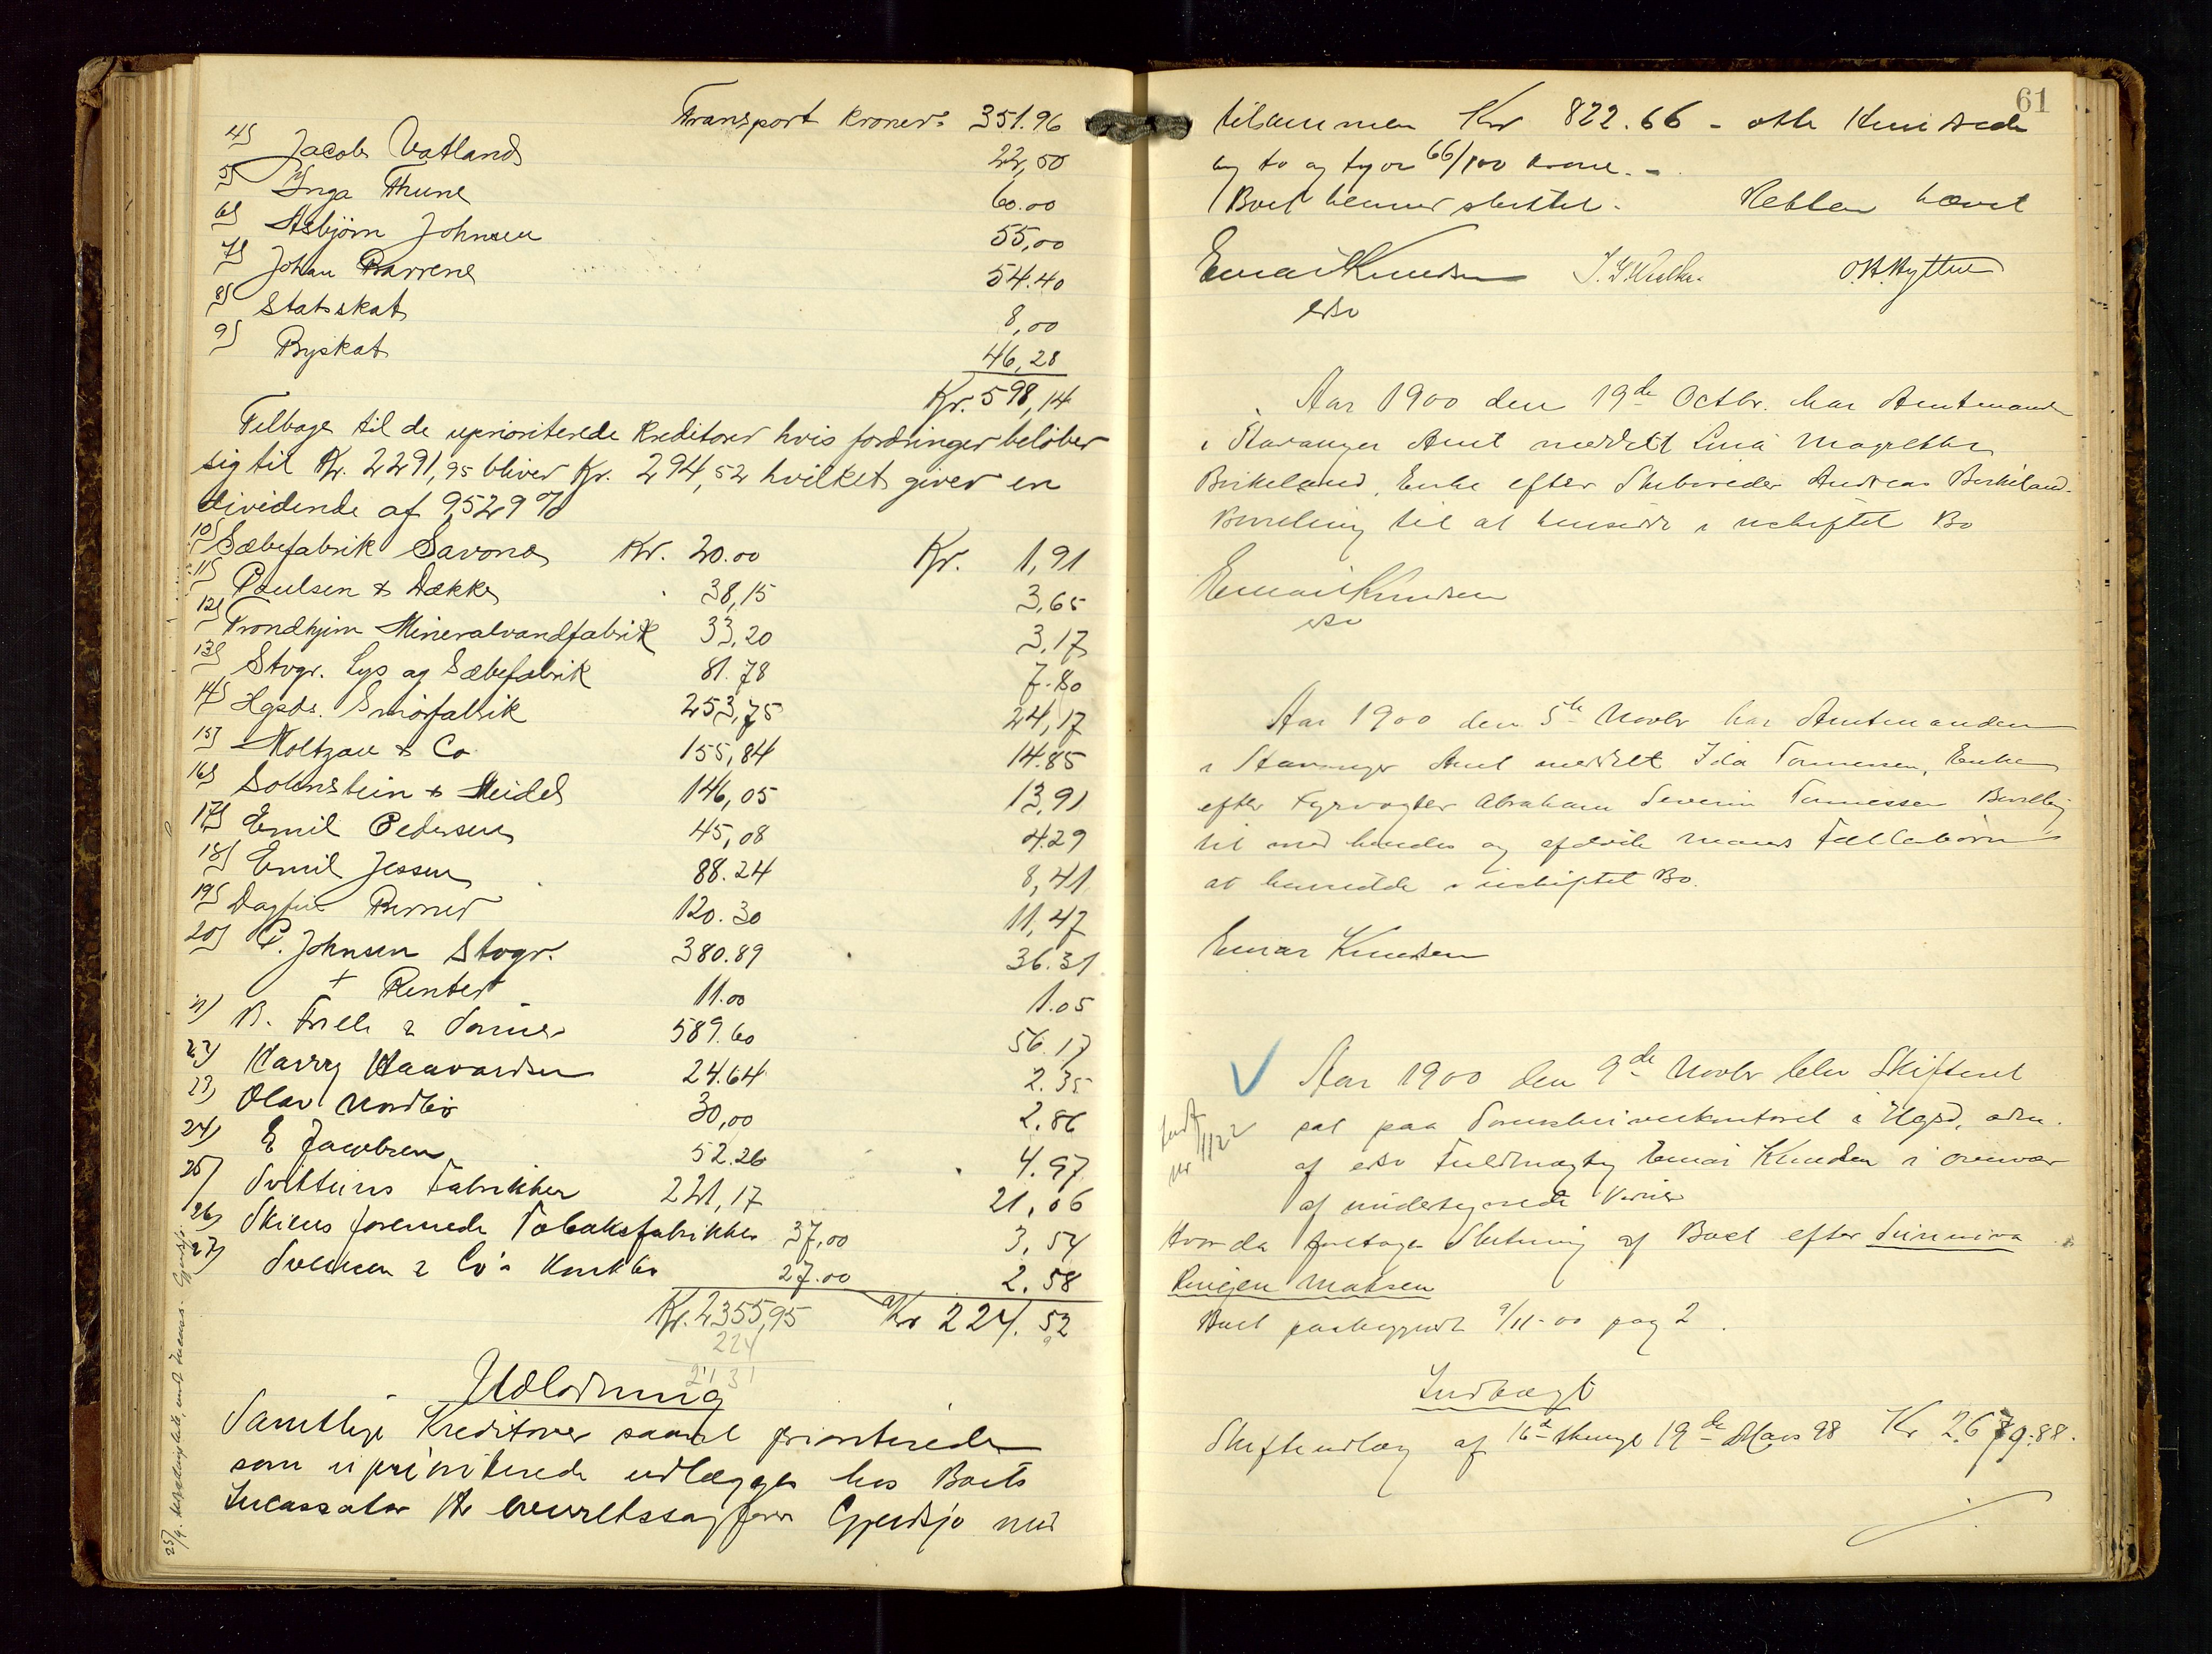 Transport Kroner: 351.96
4) Jacob Vatland 22,50
5) Inga Thune 60.00
6) Asbjörn Johnsen 55,00
7) Johan Barrene 54.40
8) Statsskat 8,00
9) Byskat 46,28
Kr. 598,14
Tilbage til de uprioriterede Kreditorer hvis fordringer beløber
sig til Kr. 2291,95 bliver Kr. 294,52 hvilket giver en
dividende af 9,529 %
10) Sæbefabrik Savona Kr. 20.00 Kr. 1,91
11) Paulsen & Dekke 38,15 3,65
12) Trondhjem Mineralvandfabrik 33,20 3,17
13) Stvgr. Lys og Sæbefabrik 81.78 7.80
14) Hgsds. Smörfabrik 253,75 24,17
15) Moltzau & Co 155,84 14.85
16) Sohnstein & Meidel 146,05 13,91
17) Emil Pedersen 45,08 4.29
18) Emil Jessen 88.24 8,41
19) Dagfin Berner 120.30 11,47
20) P. Johnsen Stvgr. 380.89 36.31
+ Renter 11.00 1.05
21) B. Friele & Sønner 589.60 56.17
22) Harry Haavardsen 24.64 2.35
23) Olav Nordbö 30,00 2.86
24) E Jacobsen 52.26 4.97
25) Fabrikker 221,17 21,06
26) Skiens forenede Tobaksfabrikker 37,00 3,54
27) Svensen & Co's Konkbo 27.00 2.58
Kr. 2355,95 Kr 224.52
224
2131
Udlodning
Samtlige Kreditorer saavel prioriterede
som uprioriterede udlægges hos Boets
Incassator Hr overretssagfører Gjerdsjø med
61
tilsammen Kr 822.66 - otte Hundrede
og to og tyve 66/100 Krone. -
Boet hermed sluttet. Retten hævet
Einar Knudsen O.H. Hytten
eso
Aar 1900 den 19de Octbr. har Amtmanden
i Stavanger Amt meddelt Lina Magrethe
Birkeland, Enke efter Skibsreder Andreas Birkeland
Bevilling til at hensidde i uskiftet Bo
Einar Knudsen
eso
Aar 1900 den 5te Novbr har Amtmanden
i Stavanger Amt meddelt Ida Tønnessen, Enke
efter Fyrvogter Abraham Severin Tønnessen Bevilling
til med hendes og afdøde Mands Fællesbørn
at hensidde i uskiftet Bo.
Einar Knudsen
Aar 1900 den 9de Novbr blev Skifteret
sat paa Sorenskriverkontoret i Hgsd, adm.
af eso Fuldmægtig Einar Knudsen i overvær
af undertegnede Vidner
Hvor da foretoges Slutning af Boet efter Sunniva
Madsen
Boet paabegyndt 9/11-00 pag 2.
Indtægt
Skifteudlæg af 16de 19de Mars 98 Kr 2.679.88.